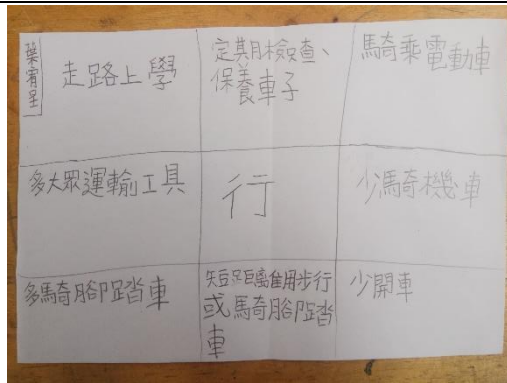 葉宥呈
走路上學
定期檢查、
保養車子
騎乘電動車
多大眾運輸工具
行
少騎機車
多騎腳踏車
短距離用步行
或騎腳踏
車
少開車